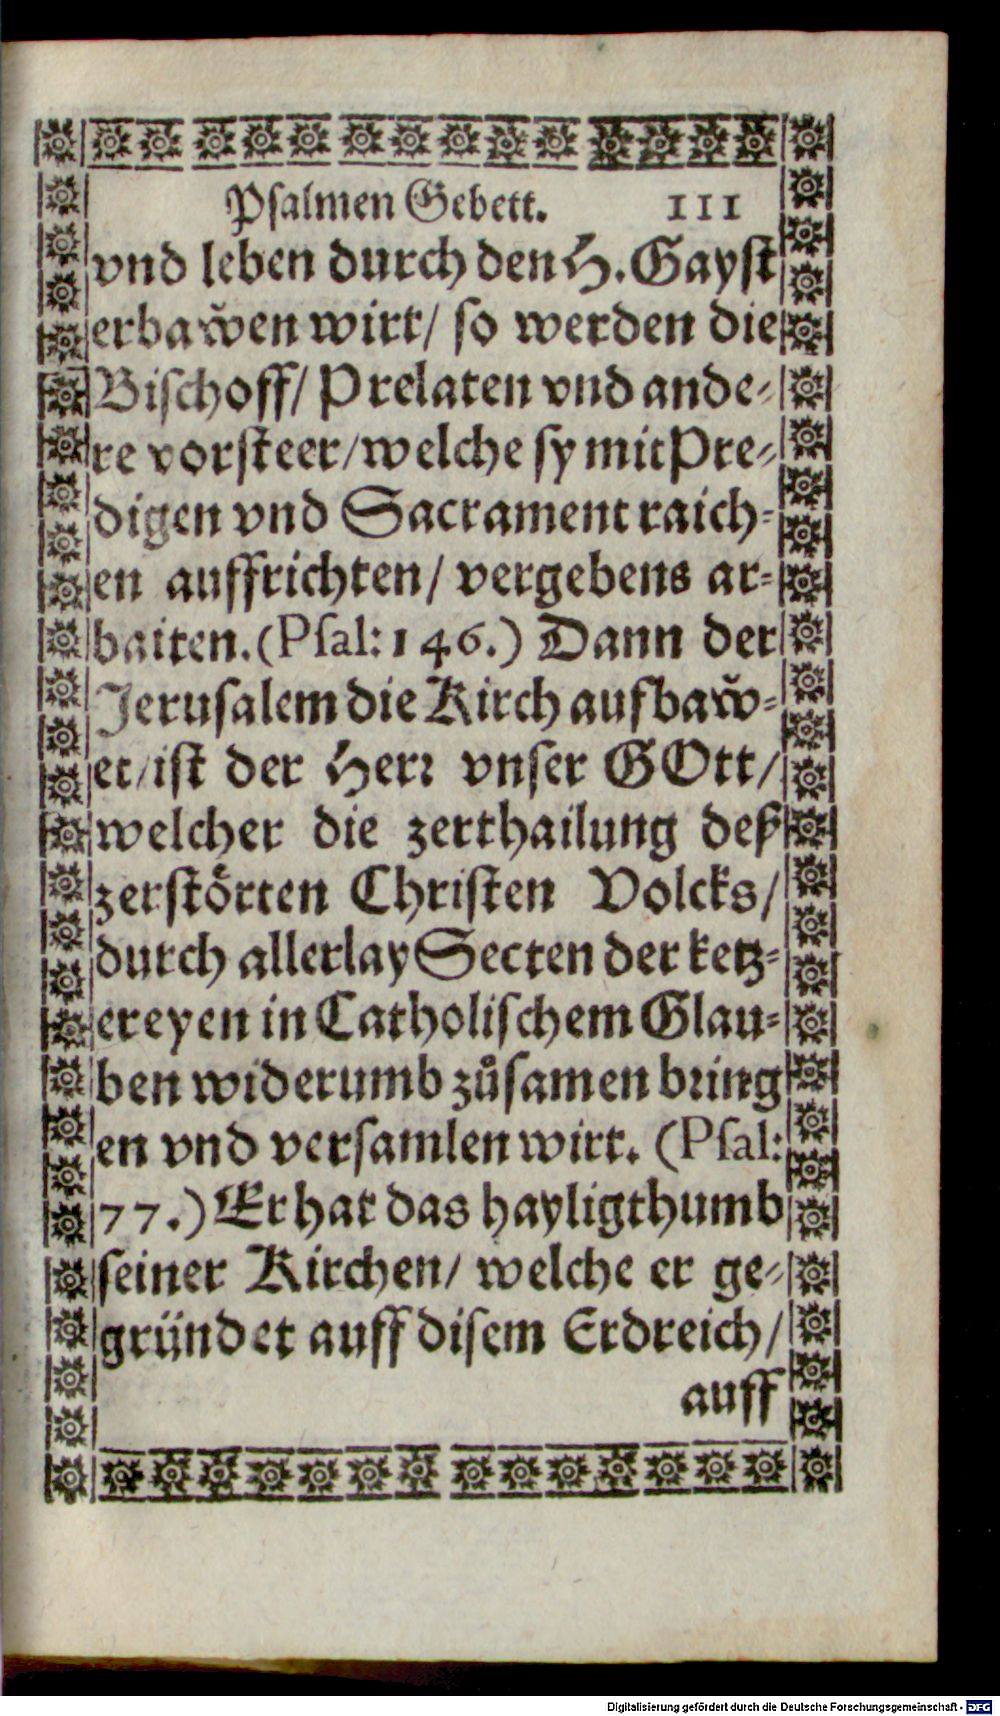 Psalmen Gebett. 111
vnd leben durch den H. Gayst
erbaw̌en wirt/ so werden die
Bischoff/ Prelaten vnd ande⸗
re vorsteer/welche sy mit Pre⸗
digen vnd Sacrament raich⸗
en auffrichten/ vergebens ar⸗
baiten. (Psal: 146.) Dann der
Jerusalem die Kirch aufbaw̌⸗
et/ist der Herr vnser GOtt/
welcher die zerthailung deß
zerstörten Christen Volcks/
durch allerlay Secten der ketz⸗
ereyen in Catholischem Glau⸗
ben widerumb zůsamen bring
en vnd versamlen wirt. (Psal:
77.) Er hat das hayligthumb
seiner Kirchen/ welche er ge⸗
gründet auff disem Erdreich/
auff
Digitalisierung gefördert durch die Deutsche Forschungsgemeinschaft - DFG